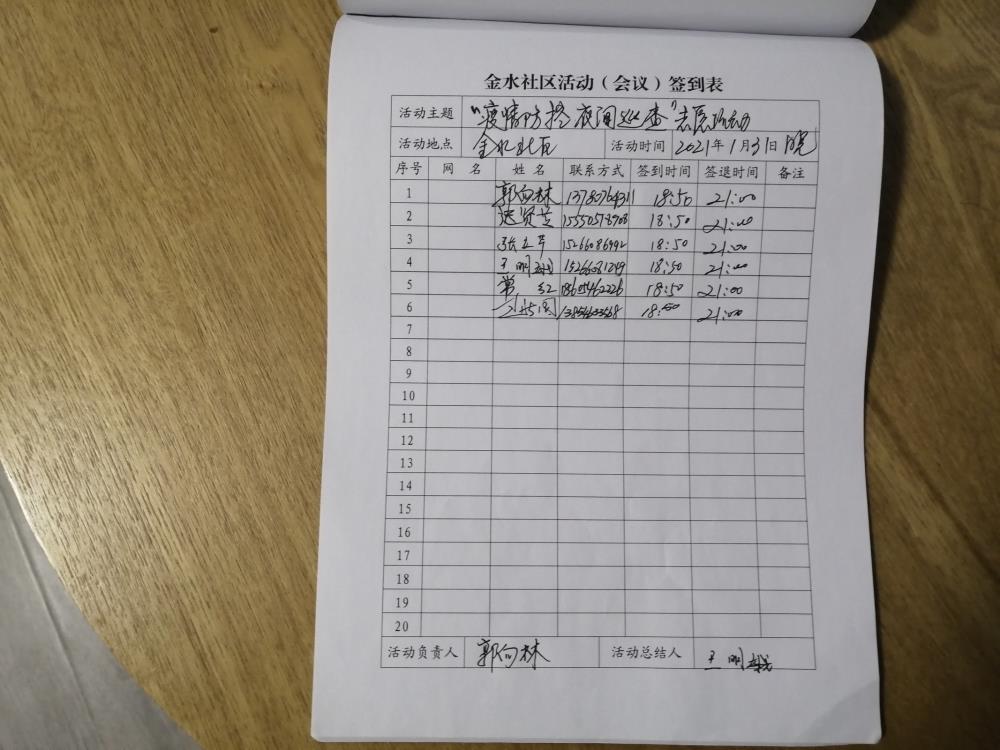 金水社区活动（会议）签到表
活动主题 "疫情防控夜间巡查"志愿活动
活动地点 金水社区 活动时间 2021年1月31日晚
序号 网名 姓名 联系方式 签到时间 签退时间 备注
1 郭向林 18:50 21:00
2 18:50 21:00
3 18:50 21:00
4 王明 18:50 21:00
5 常红 18:50 21:00
6 18:50 21:00
7
8
9
10
11
12
13
14
15
16
17
18
19
20
活动负责人 郭向林 活动总结人 王明